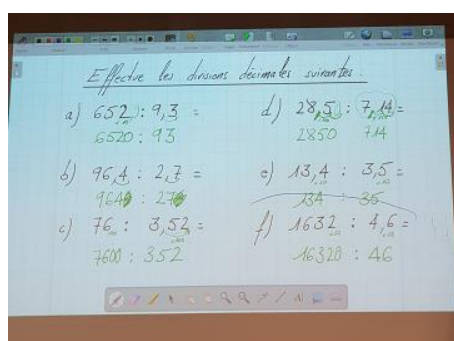 Effectue les divisions décimales suivantes :
a) 652 : 9,3 =
6520 : 93
b) 96,4 : 2,7 =
964 : 27
c) 76 : 3,52 =
7600 : 352
d) 28,5 : 7,14 =
2850 714
e) 13,4 : 3,5 =
134 : 35
f) 1632 : 4,6 =
16320 : 46